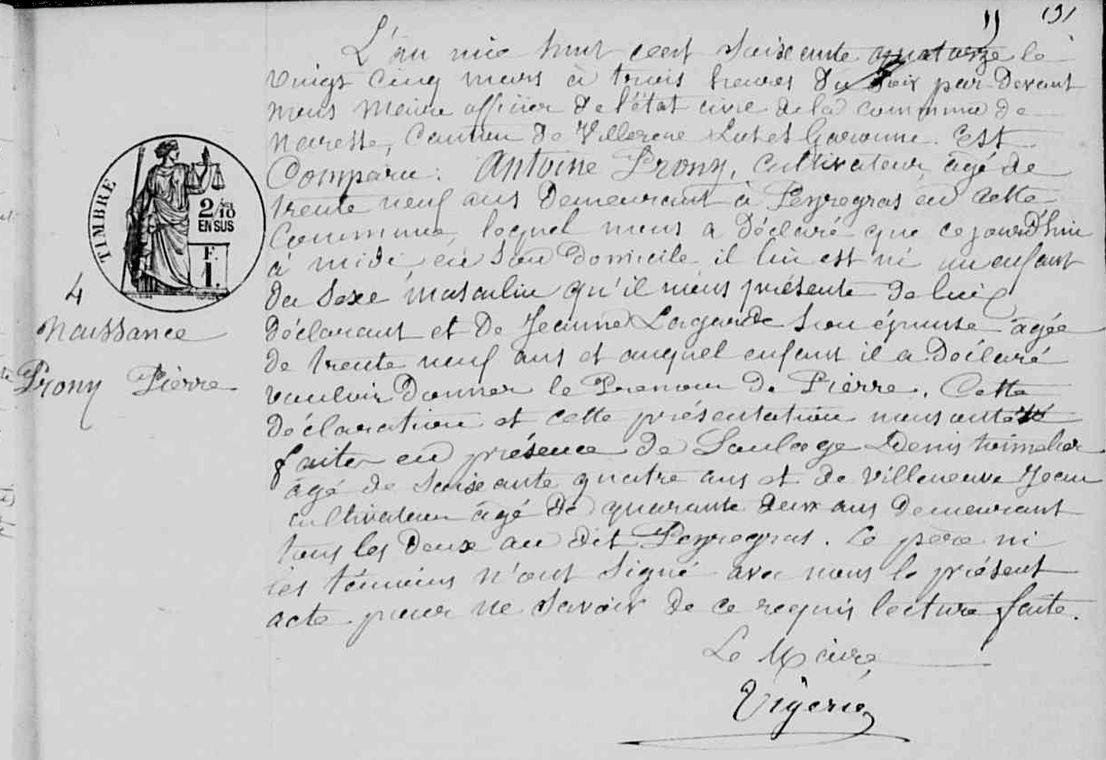 11 131
L'an mil huit cent Soixante quatorze le
vingt cinq mars à trois heures du Soir par-devant
nous Maire officier de l'état civil de la commune de
Canton de Lot et Garonne. Est
Comparu: Antoine Prony, Cultivateur, agé de
trente neuf ans demeurant à Peyregras en cette
Commune, lequel nous a déclaré que ce jourd'hui
à midi en Son domicile il lui est né un enfant
du Sexe masculin qu'il nous présente de lui
déclarant et de Jeanne Lagarde Son épouse agée
de trente neuf ans et auquel enfant il a déclaré
vouloir donner le Prenom de Pierre. Cette
déclaration et cette présentation nous ont été
faites en présence de Soulage Denis
agé de Soixante quatre ans et de Villeneuve Jean
cultivateur agé de quarante deux ans demeurant
tous les deux au dit Peyregras. Le père ni
les témoins n'ont Signé avec nous le présent
acte pour ne Savoir de ce requis lecture faite.
Le Maire
Vigerie
TIMBRE
2/10
EN SUS
F.
1.
4
Naissance
Prony Pierre